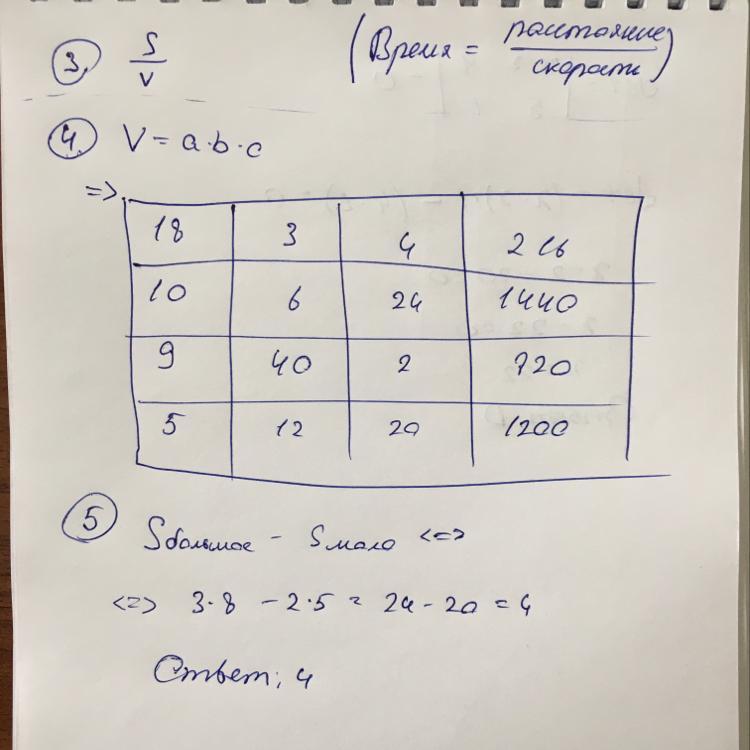 3. S/V (Время = расстояние/скорость)
4. V = a·b·c
=>
18 3 4 216
10 6 24 1440
9 40 2 720
5 12 20 1200
5 Sбольшое - Sмало <=>
<=> 3·8 - 2·5 = 24 - 20 = 4
Ответ: 4